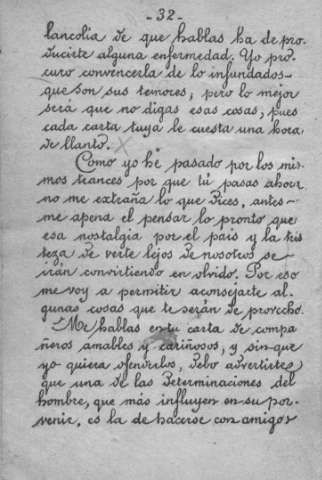 -32-
lancolia de que hablas ha de pro-
ducirte alguna enfermedad. Yo pro-
curo convencerla de lo infundados
que son sus temores, pero lo mejor
será que no digas esas cosas, pues
cada carta tuya le cuesta una hora
de llanto.
Como yo hé pasado por los mis-
mos trances por que tú pasas ahora
no me extraña lo que dices, antes
me apena el pensar lo pronto que
esa nostalgia por el país y la tris
teza de verte lejos de nosotros se
irán convirtiendo en olvido. Por eso
me voy a permitir aconsejarte al-
gunas cosas que te serán de provecho.
Me hablas en tu carta de compa
ñeros amables y cariñosos, y sin que
yo quiera ofenderlos, debo advertirte,
que una de las determinaciones del
hombre, que más influyen en su por-
venir, es la de hacerse con amigos